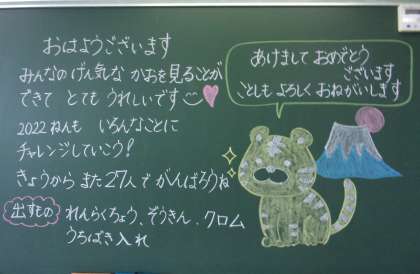 おはようございます
みんなのげん気な かおを見ることが
できて とても うれしいです
2022ねんも いろんなことに
チャレンジしていこう!
きょうから また27人で がんばろうね
出すもの れんらくちょう、ぞうきん、クロム
うちばき入れ
あけまして おめでとう
ございます
ことしも よろしく おねがいします